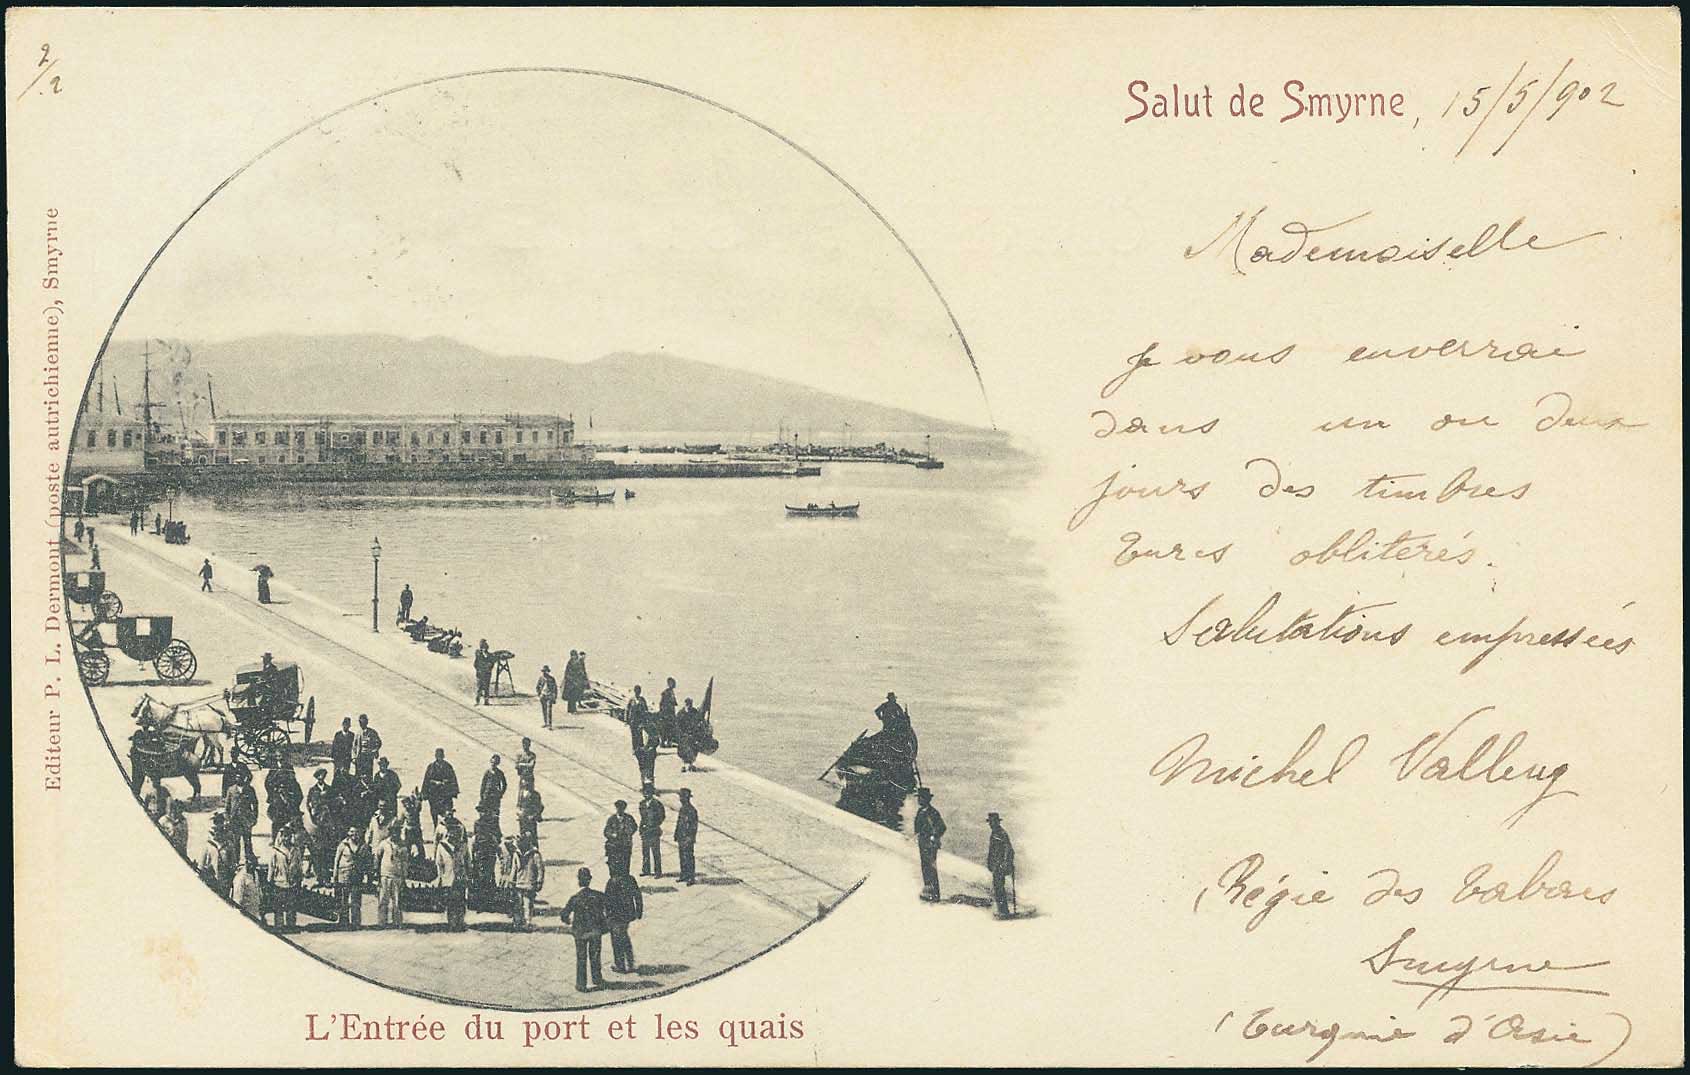 2/2
Salut de Smyrne, 15/5/902
Mademoiselle
Je vous enverrai
dans un ou deux
jours des timbres
turcs oblitérés.
Salutations empressées
Michel
Régie des tabacs
Smyrne
(Turquie d'Asie)
Editeur P. L. Dermont (poste autrichienne), Smyrne
L'Entrée du port et les quais